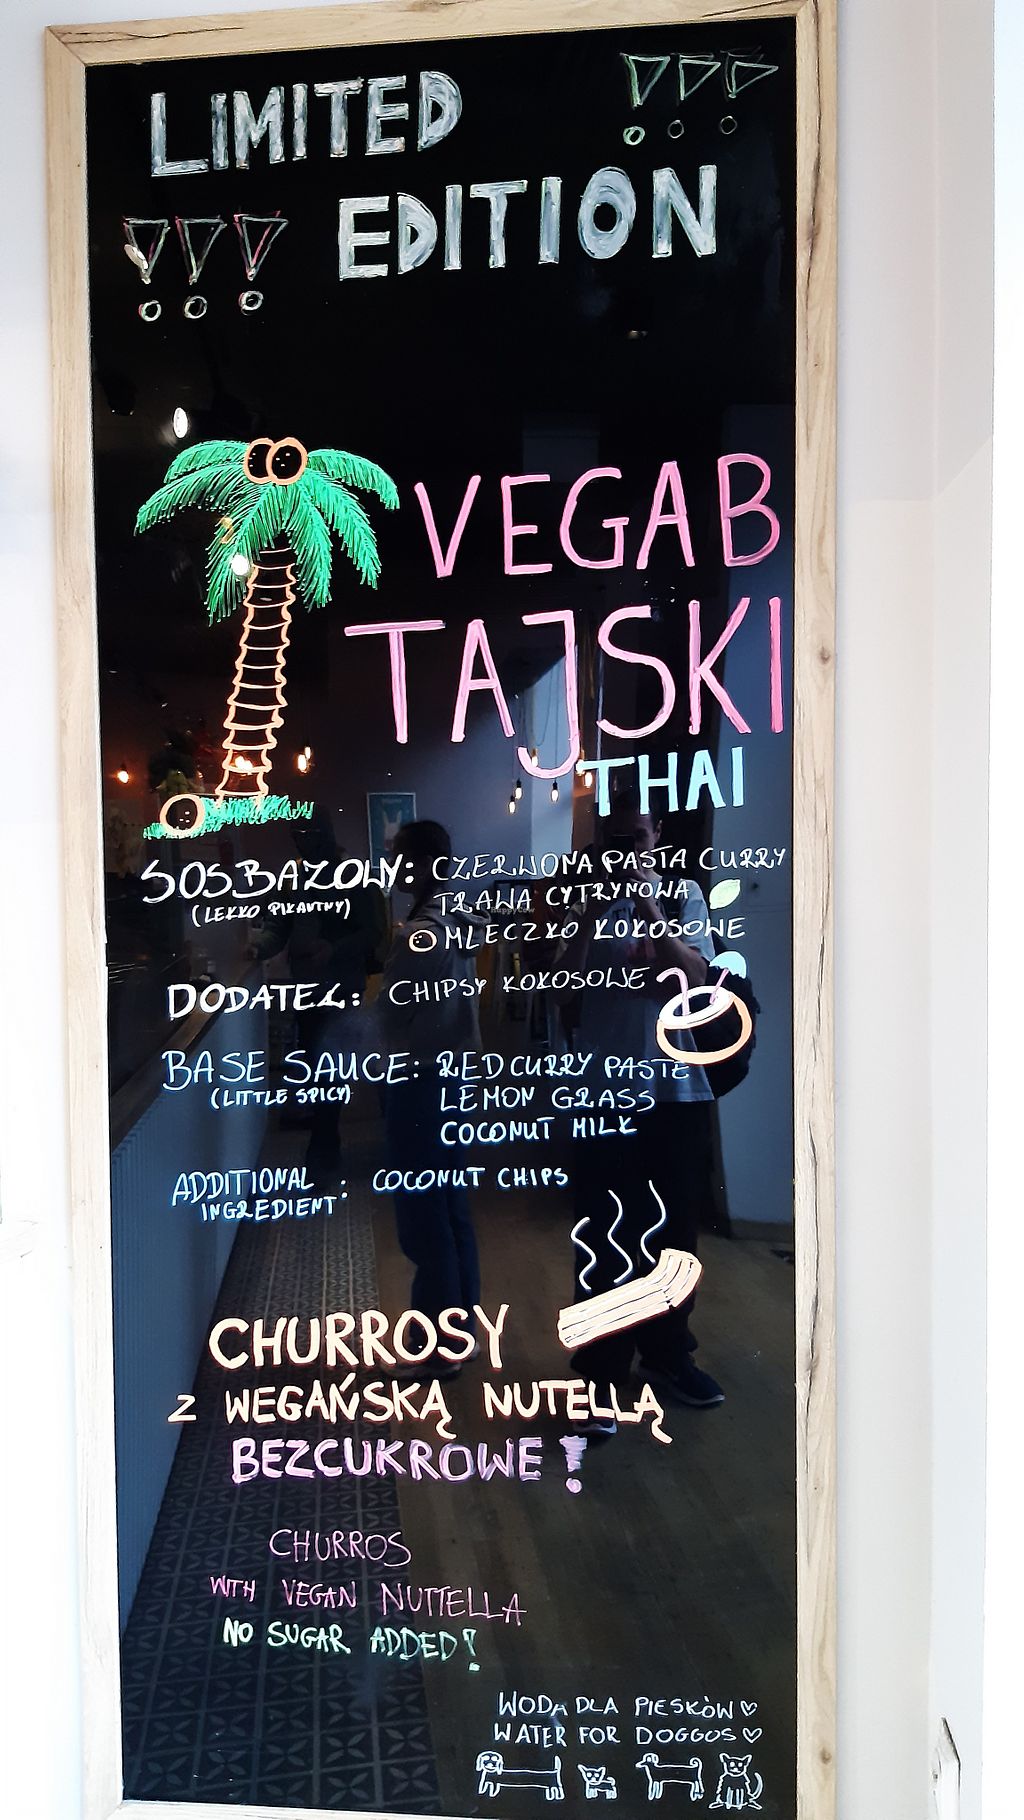 LIMITED !!!
!!! EDITION
VEGAB
TAJSKI
THAI
SOS BAZOWY: CZERWONA PASTA CURRY
(LEKKO PIKANTNY) TRAWA CYTRYNOWA
MLECZKO KOKOSOWE
DODATEK: CHIPSY KOKOSOWE
BASE SAUCE: RED CURRY PASTE
(LITTLE SPICY) LEMON GRASS
COCONUT MILK
ADDITIONAL INGREDIENT: COCONUT CHIPS
CHURROSY
Z WEGAŃSKĄ NUTELLĄ
BEZCUKROWE!
CHURROS
WITH VEGAN NUTTELLA
NO SUGAR ADDED!
WODA DLA PIESKÓW♡
WATER FOR DOGGOS♡